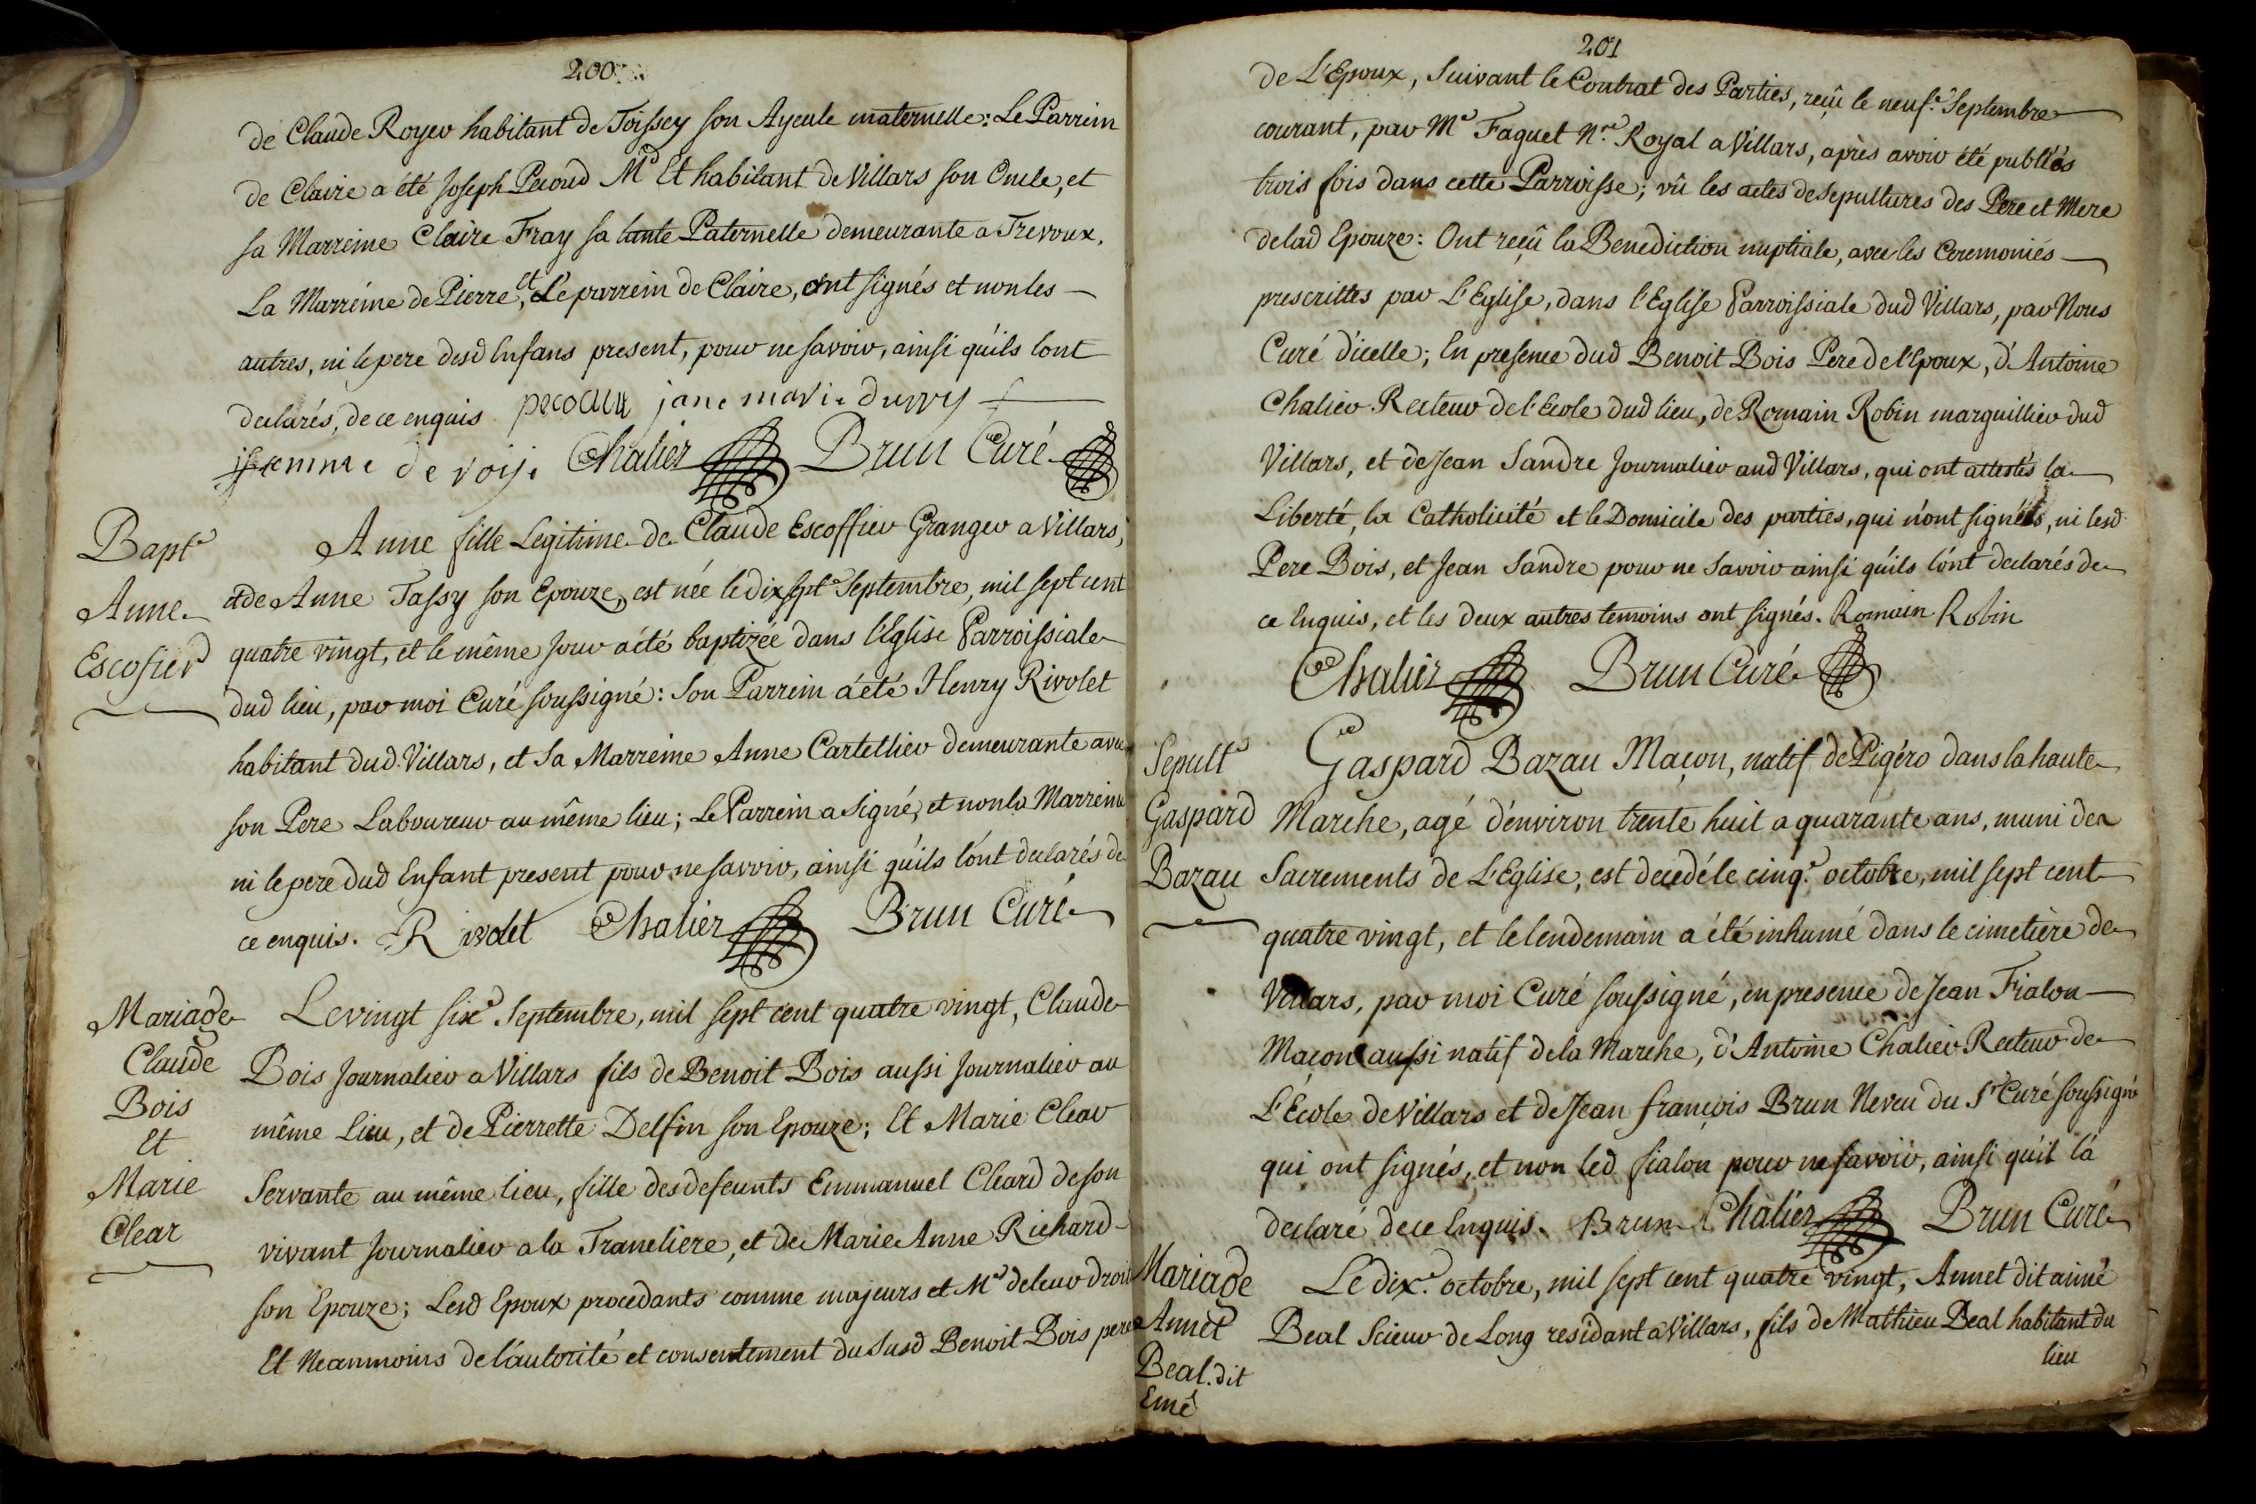 200
de Claude Royer habitant de Toissey son Ayeule maternelle: Le Parrein
de Claire a été Joseph Pecoud Md Et habitant de Villars son Oncle, et
sa Marreine Claire Fray sa tante Paternelle demeurante a Trevoux.
La Marréine de Pierre, et Le parrein de Claire, ont signés et non les
autres, ni le pere desd Enfans present, pour ne savoir, ainsi qu'ils lont
declarés, de ce enquis pecoud jane marie durry
femme de Chalier Brun Curé
Bapte
Anne
Escofier
Anne fille Legitime de Claude Escoffier Granger a Villars,
et de Anne Tassy son Epouze, est née le dix septe Septembre, mil sept cent
quatre vingt, et le même jour a été baptizée dans l'Eglise Parroissiale
dud lieu, par moi Curé soussigné: Son Parrein a été Henry Rivolet
habitant dud. Villars, et Sa Marreine Anne Cartellier demeurante avec
son Pere Laboureur au même lieu; Le Parrein a signé, et non la Marreine
ni le pere dud Enfant present pour ne savoir, ainsi qu'ils l'ont declarés de
ce enquis. Rivolet Chalier Brun Curé
Mariage
Claude
Bois
Et
Marie
Clear
Le vingt sixe Septembre, mil sept cent quatre vingt, Claude
Bois Journalier a Villars fils de Benoit Bois aussi Journalier au
même Lieu, et de Pierrette Delfin son Epouze; Et Marie Clear
Servante au même lieu, fille des defeunts Emmanuel Cleard de son
vivant Journalier a la Traneliere, et de Marie Anne Richard
son Epouze; Lesd Epoux procedants comme majeurs et Me de leur droits
Et Neanmoins de l'autorité et consentement du Susd Benoit Bois pere
201
de L'Epoux, Suivant le Contrat des Parties, reçû le neufe Septembre
courant, par Me Faguet Nre Royal a Villars, après avoir été publiés
trois fois dans cette Parroisse; vû les actes de sepultures des Pere et Mere
de lad Epouze: Ont reçû la Benediction nuptiale, avec les Ceremoniés
prescrittes par L'Eglise, dans l'Eglise Parroissiale dud Villars, par Nous
Curé d'icelle; En presence dud Benoit Bois Pere de l'Epoux, d'Antoine
Chalier Recteur de l'Ecole dud lieu, de Romain Robin marguillier dud
Villars, et de Jean Sandre Journalier aud Villars, qui ont attestés la
Liberté, la Catholicité et le Domicile des parties, qui n'ont signées, ni lesd
Pere Bois, et Jean Sandre pour ne savoir ainsi qu'ils l'ont declarés de
ce Enquis, et les deux autres temoins ont signés. Romain Robin
Chalier Brun Curé
Sepulte
Gaspard
Bazau
Gaspard Bazau Maçon, natif de Pigéro dans la haute
Marche, agé d'environ trente huit a quarante ans, muni des
Sacrements de L'Eglise, est decedé le cinqe octobre, mil sept cent
quatre vingt, et le lendemain a été inhumé dans le cimetière de
Villars, par moi Curé soussigné, en presence de Jean Fialon
Maçon aussi natif de la Marche, d'Antoine Chalier Recteur de
L'École de Villars et de Jean françois Brun Neveu du Sr Curé soussigné
qui ont signés, et non led fialon pour ne savoir, ainsi qu'il la
declaré de ce Enquis. Brun Chalier Brun Curé
Mariage
Annet
Beal. dit
Emé
Le dixe octobre, mil sept cent quatre vingt, Annet dit aimé
Beal Scieur de Long residant a Villars, fils de Mathieu Beal habitant du
lieu